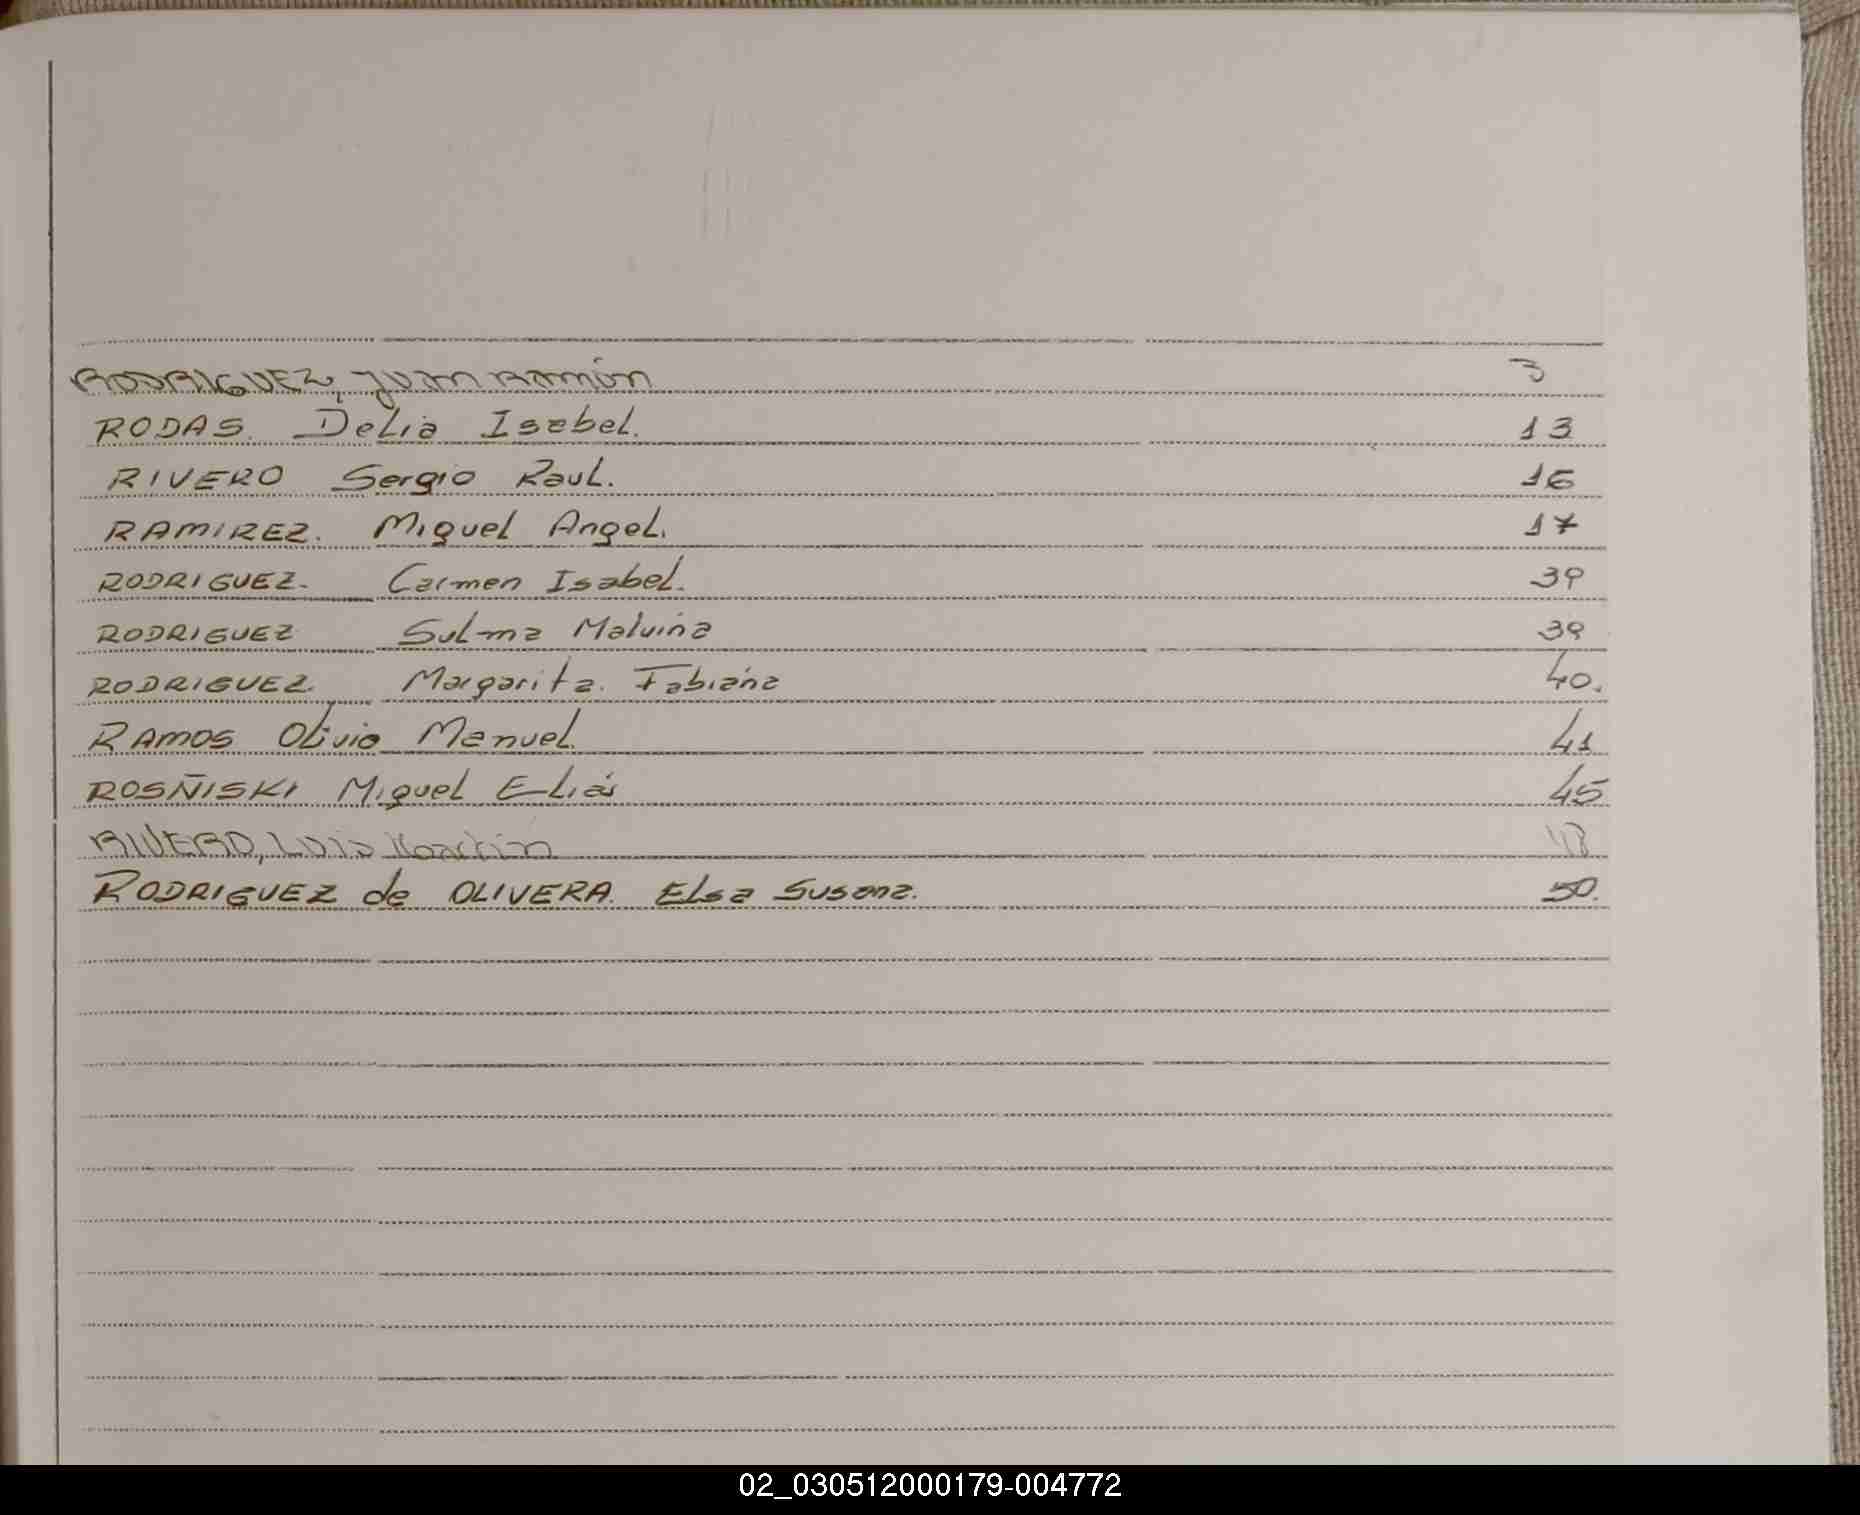 RODRIGUEZ, Juan Ramón 3
RODAS. Delia Isabel. 13
RIVERO Sergio Raul. 16
RAMIREZ. Miguel Angel. 17
RODRIGUEZ. Carmen Isabel. 39
RODRIGUEZ Sulma Malvina 39
RODRIGUEZ. Margarita. Fabiána 40.
RAMOS Olivio Manuel. 41
ROSÑISKI Miguel Eliás 45
RIVERO, Luis Martin 48
RODRIGUEZ de OLIVERA. Elsa Susana. 50.
02_030512000179-004772